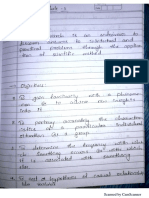 Unit - 1
research is an endeavor to
discover answers to intellectual and
practical problems through the applica-
tion of scientific method
Objectives :
To gain familiarity with a phenomenon
or to achieve new insights
into it
To portray accurately the characteris-
tics of a particular individual
situation or a group
To determine the frequency with
which something occurs with which
it is associated with something
else
To test a hypothesis of causal relationship
Scanned by CamScanner